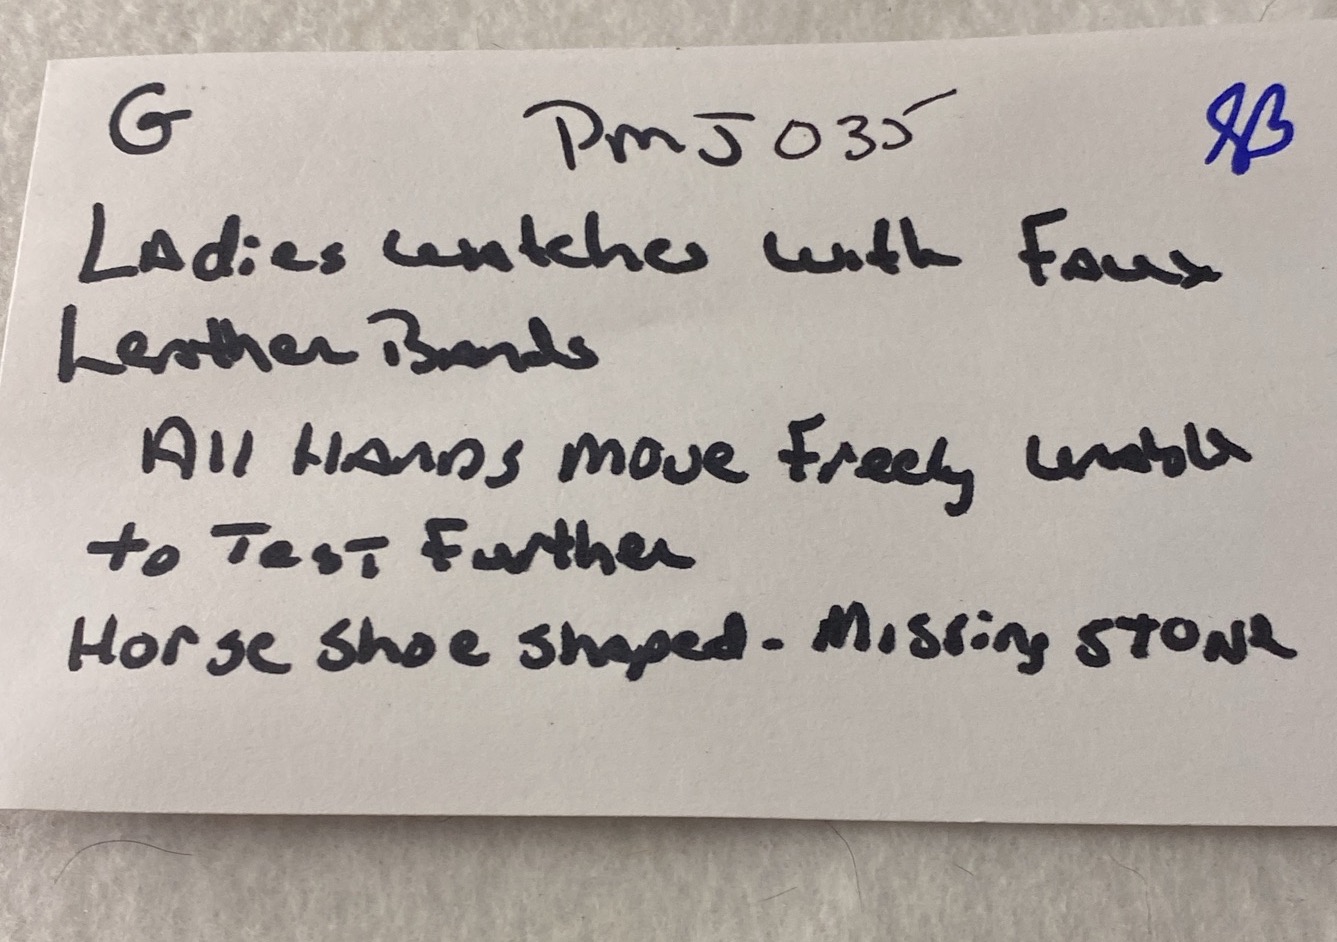 G PMJ 035
Ladies watches with Faux
Leather Bands
All Hands move freely unable
to Test Further
Horse shoe shaped - Missing STONE